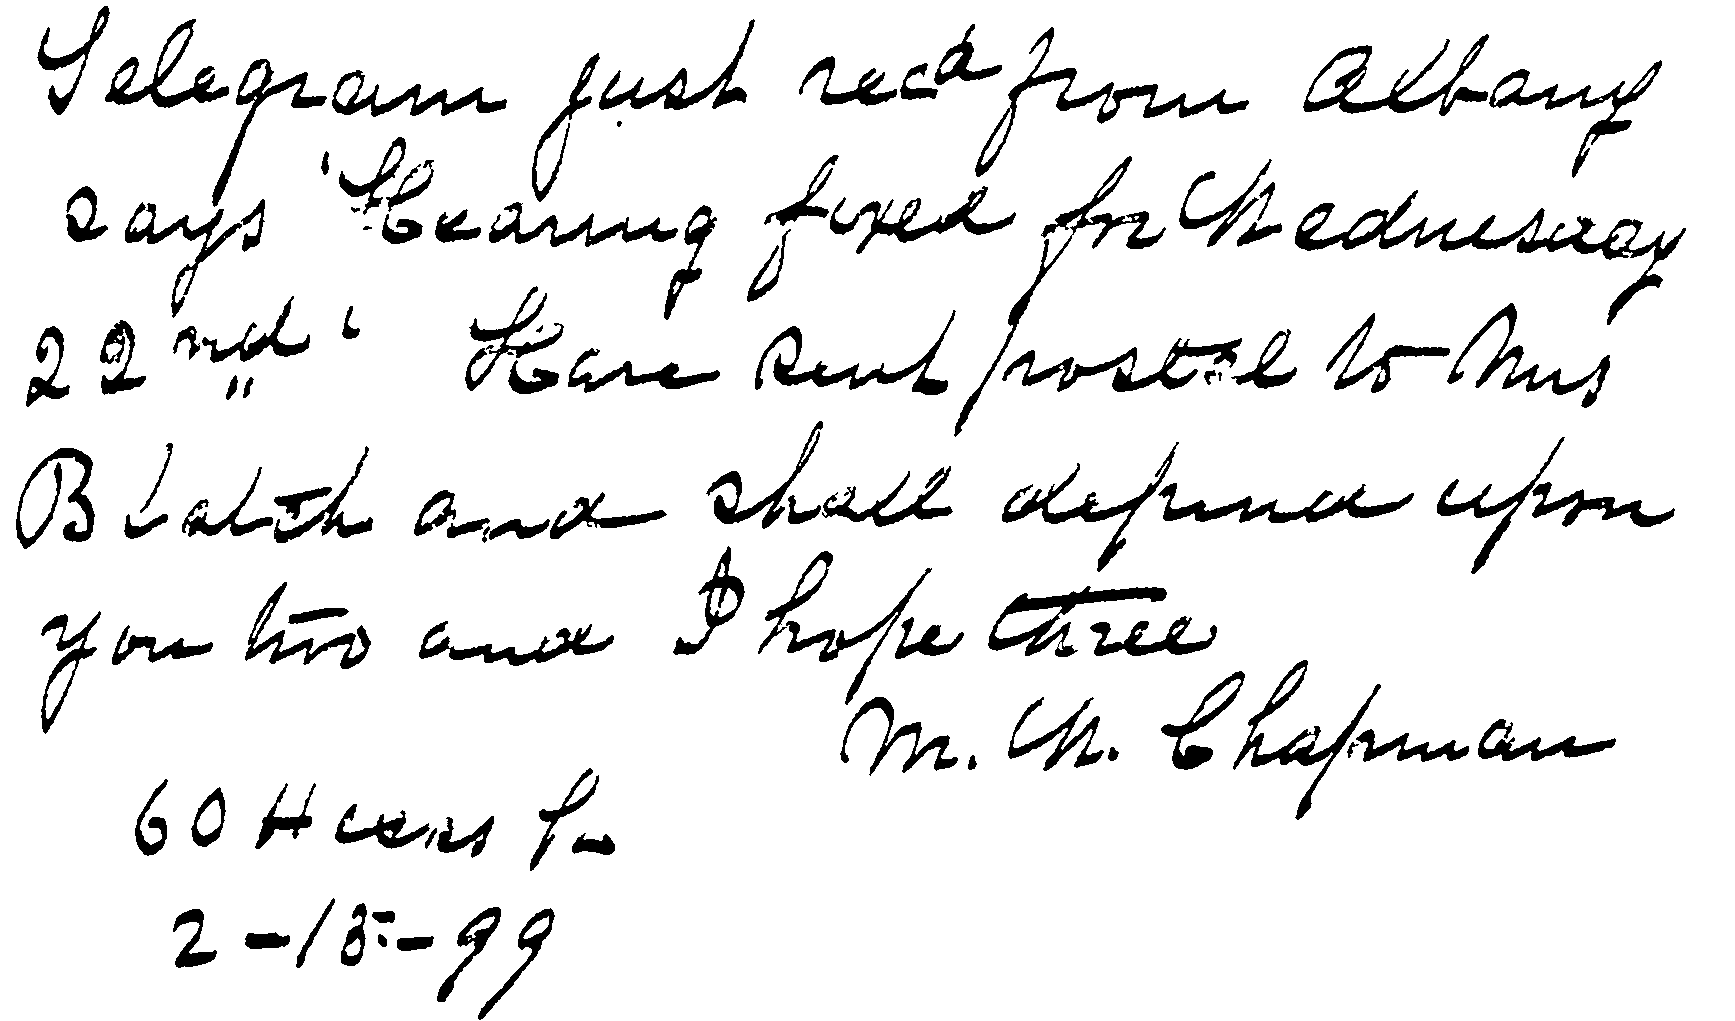 Telegram just recd from Albany
says 'Hearing fixed for Wednesday
22nd' Have sent postal to Mrs
Blatch and shall depend upon
you two and I hope three
M. W. Chapman
60
2-15-99